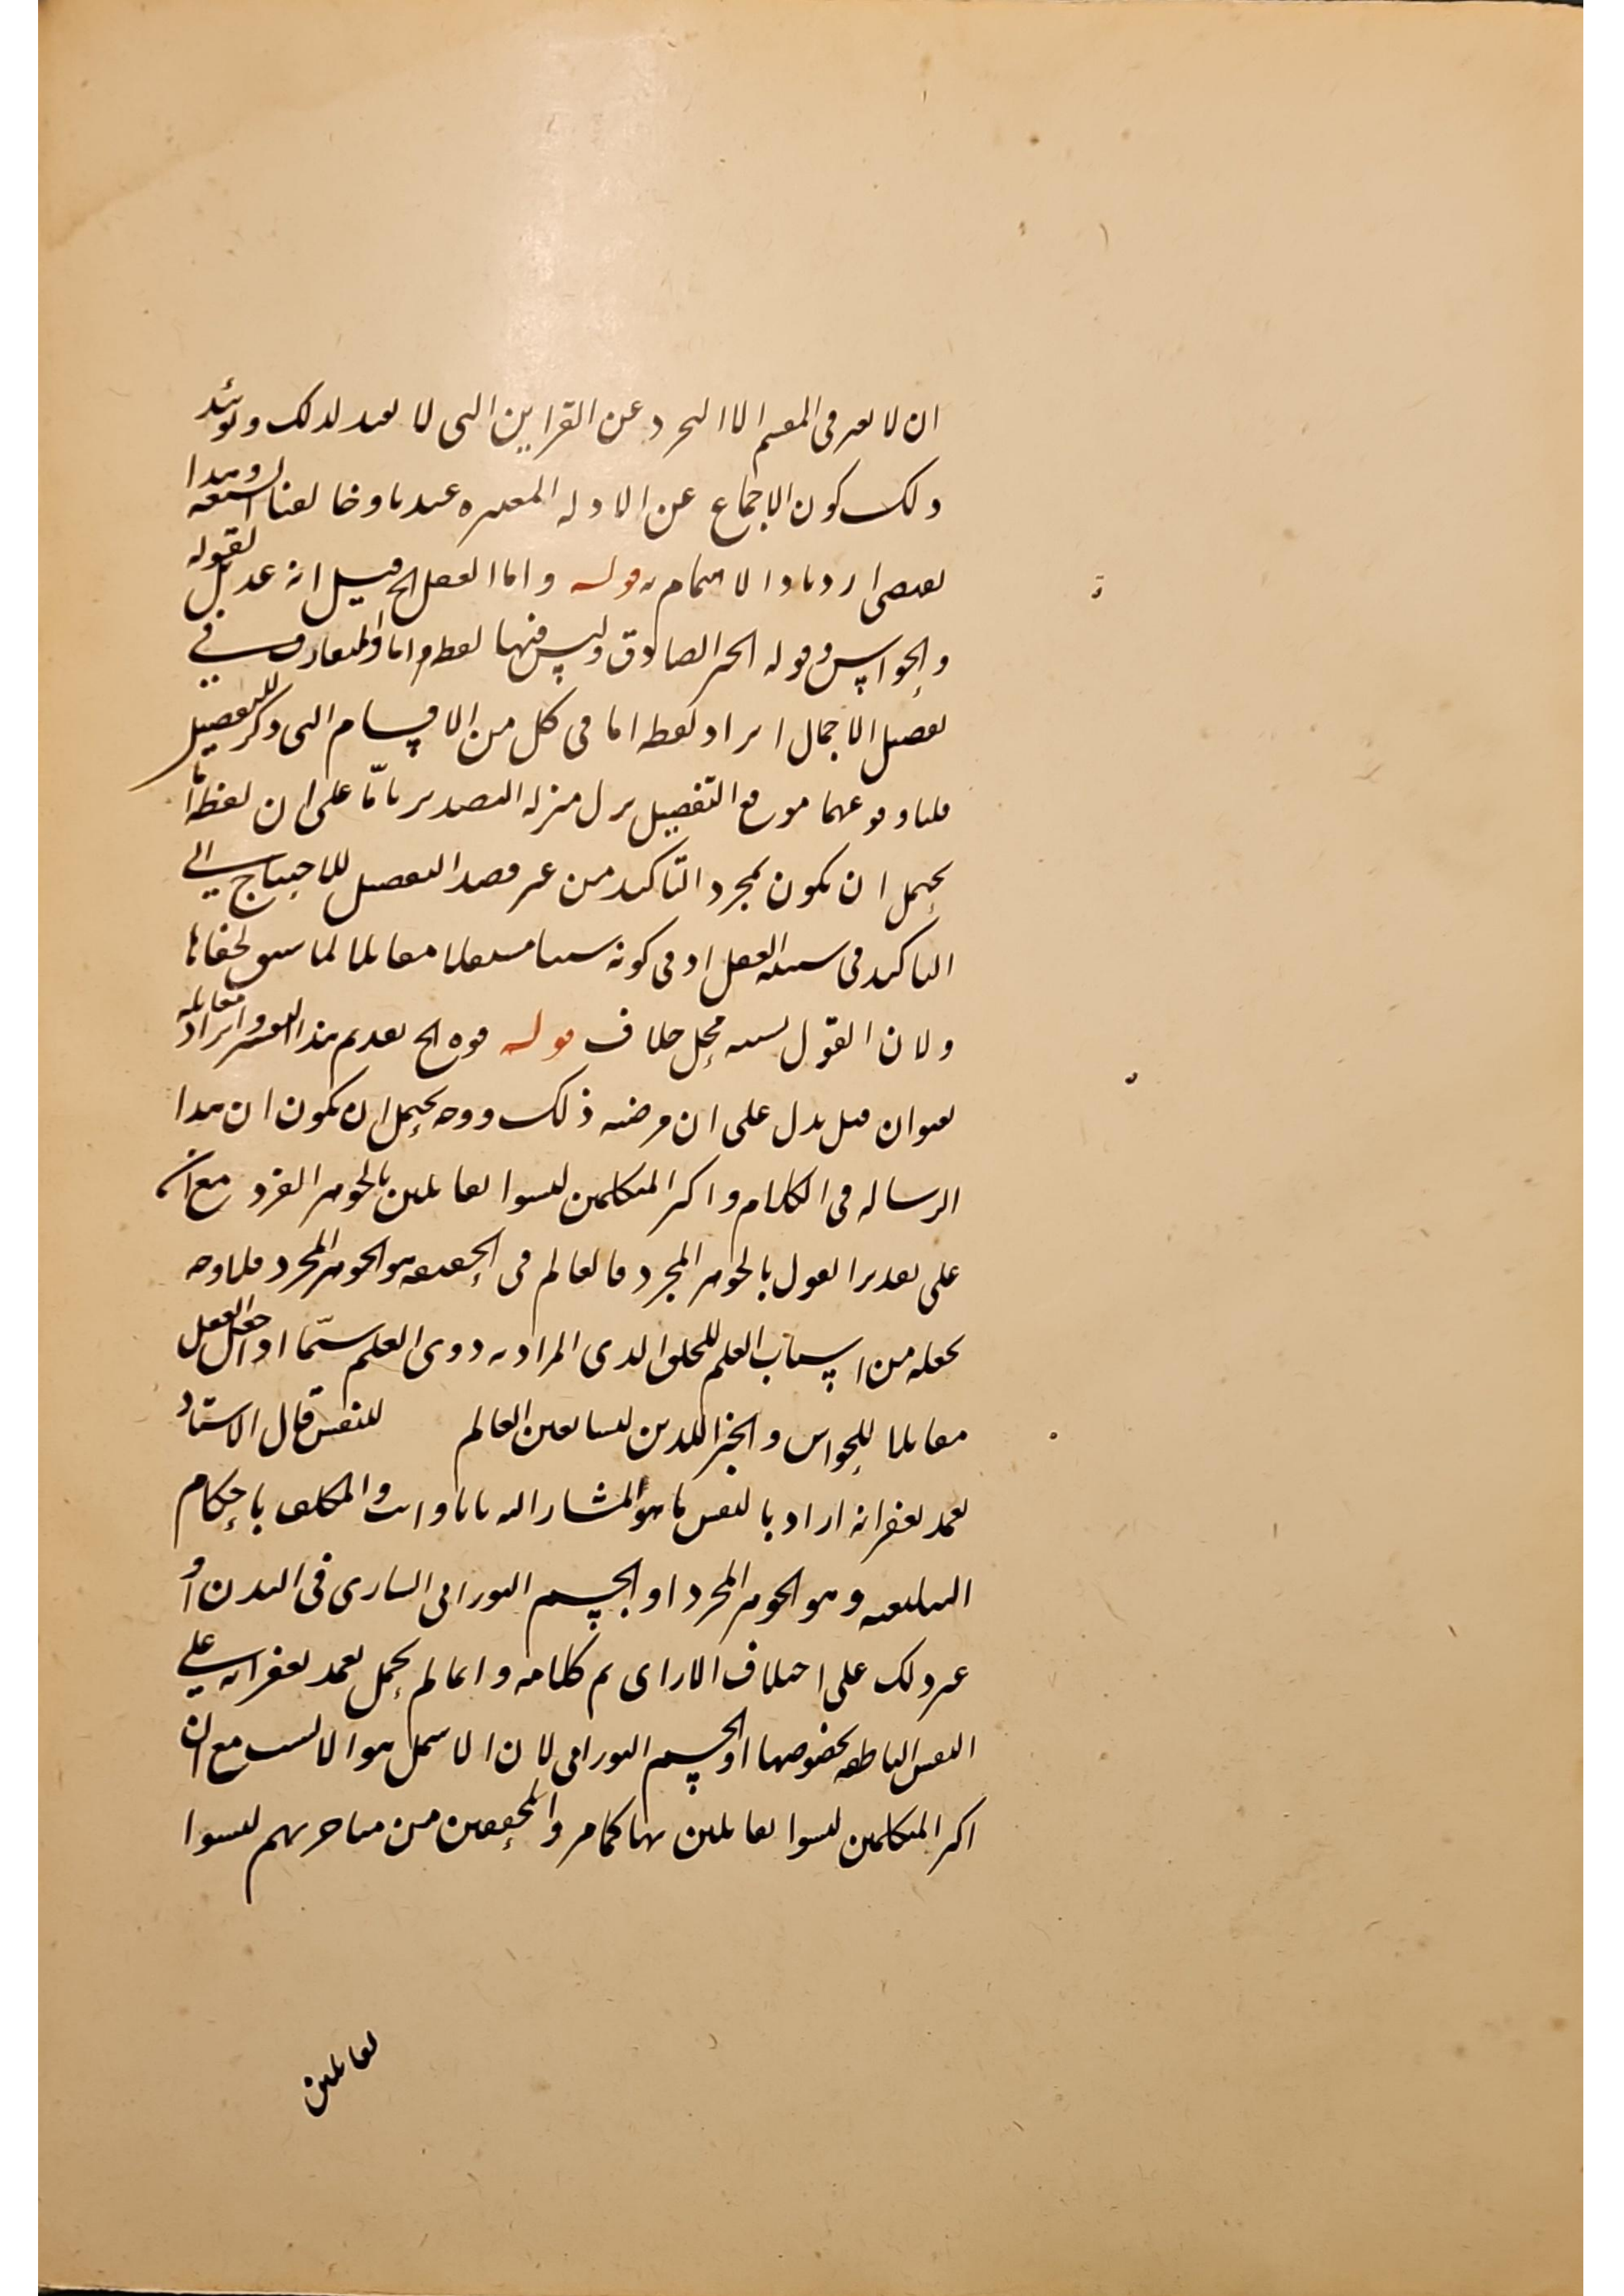 ان لا يعتبر في المقسم الا التجرد عن القراين التي لا تفيد لذلك ويؤيد
ذلك كون الاجماع عن الادلة المعتبرة عندنا وخالفنا الشيعة وهذا
يقتضي ازدياد الاهتمام به قوله واما العقل الخ قيل انه عديل لقوله
والحواس وقوله الخبر الصادق وليس فيهما لفظة واما والمتعارف في
تفصيل الاجمال ايراد لفظة اما في كل من الاقسام التي ذكر للتفصيل
قلنا وقوعهما موقع التفصيل نزل منزلة التصدير باما على ان لفظة اما
يحتمل ان يكون لمجرد التاكيد من غير قصد التفصيل للاحتياج الى
التاكيد في سببية العقل او في كونه سببا مستقلا مقابلا لما سبق لخفائها
ولان القول بسببيته محل خلاف قوله قوة الخ تقديم هذا التفسير وايراد مقابله
بعنوان قيل يدل على ان مرضيه ذلك ووجه يحتمل ان يكون ان هذا
الرسالة في الكلام واكثر المتكلمين ليسوا بقائلين بالجوهر الفرد مع انه
على تقدير القول بالجوهر المجرد فالعالم في الحقيقة هو الجوهر المجرد فلا وجه
لجعله من اسباب العلم للخلق الذي المراد به ذوي العلم سيما اذا جعل العقل
مقابلا للحواس والخبر اللذين ليسا بعين العالم للنفس قال الاستاد
تغمد بغفرانه اراد بالنفس ما هو المشار اليه بانا وانت والمكلف باحكام
التكليفية وهو الجوهر المجرد او الجسم النوراني الساري في البدن او
غير ذلك على اختلاف الاراى تم كلامه وانما لم يحمل تغمد بغفرانه على
النفس الناطقة بخصوصها او الجسم النوراني لان الاشمل هو الانسب مع ان
اكثر المتكلمين ليسوا بقائلين بها كما مر والمحققين من متاخريهم ليسوا
بقائلين